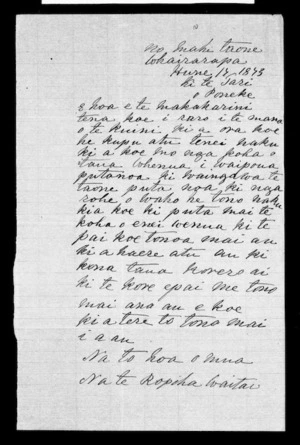 No, Mahi taone
Whairarapa
Hune 17, 1875
Ki te Tari
o Poneke
E hoa e te Makakarini
tena koe i raro i te mana
o te kuini kia ora koe
he kupu atu tenei naku
ki a koe mo nga koha o
taua whenua i waipoua
putanoa ki waingawa te
taone puta noa ki nga
rohe o waho he tono naku
kia koe ki puta mai te
koha o enei wenua ki te
pai koe tonoa mai au
kia haere atu au ki
kona taua korero ai
ki te kore e pai me tono
mai ana au e koe
kia tere to tono mai
i a au
Na to hoa o mua
Na te Ropiha Waitai